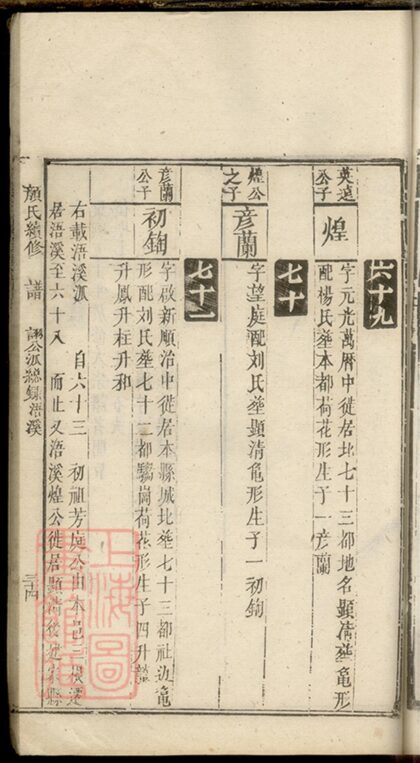 六十九
英遠公子
煌
字元光萬厝中徙居北七十三都地名顯清塟龜形
配楊氏塟本都荷花形生子一彥蘭
七十
煌公之子
彥蘭
字望庭配刘氏塟顯清龜形生子一初銁
七十一
彥蘭公子
初銁
字啟新順治中徙居本縣城北塟七十三都社边龜
形配刘氏塟七十二都鷄崗荷花形生子四升
升鳳升柱升和
右載浯溪派 自六十三 初祖芳庭公由本邑三
居浯溪至六十八 而止又浯溪煌公徙居顯清後
顏氏續修 譜 公派 錄浯溪
三十四
上海圖